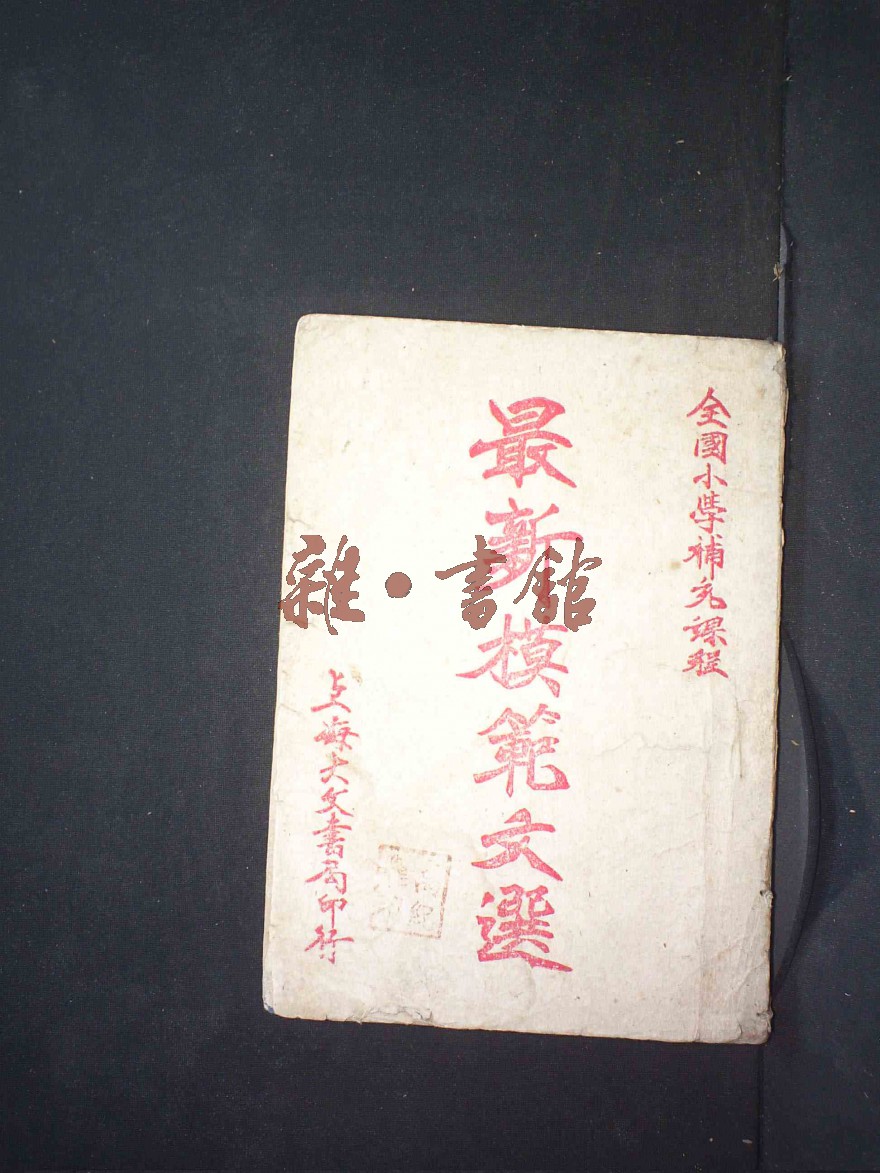 全國小學補充課程
最新模範文選
上海大文書局印行
雜·書館